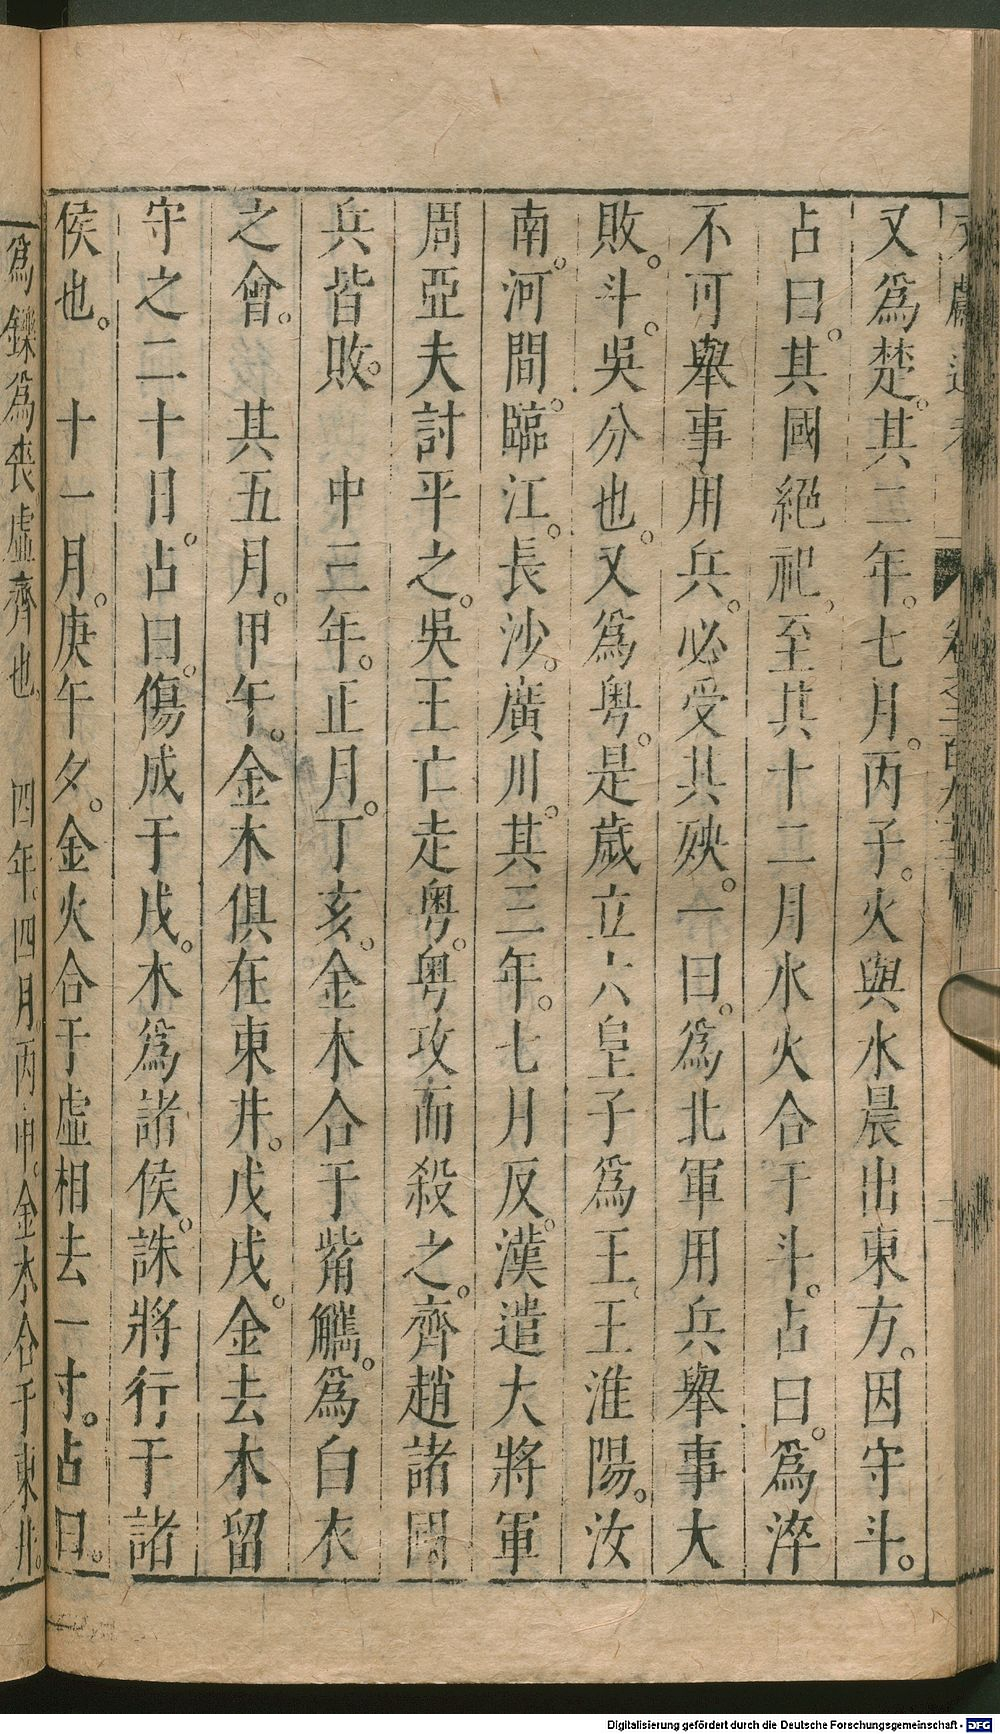 又爲楚。其二年。七月。丙子。火與水晨出東方。因守斗。
占曰。其國絕祀。至其十二月水火合于斗。占曰。爲淬
不可舉事用兵。必受其殃。一曰。爲北軍用兵舉事大
敗。斗。吳分也。又爲粤。是歲立六皇子爲王。王淮陽。汝
南。河間。臨江。長沙。廣川。其三年。七月反。漢遣大將軍
周亞夫討平之。吳王亡走粤。粤攻而殺之。齊趙諸國。
兵皆敗。 中三年。正月。丁亥。金木合于觜觿。爲白衣
之會。 其五月。甲午。金木俱在東井。戊戌。金去木留
守之二十日。占曰。傷成于戌。木爲諸侯。誅將行于諸
侯也。 十一月。庚午夕。金火合于虛相去一寸。占曰。
爲鑠爲喪虛齊也。 四年。四月丙申。金木合于東井。
Digitalisierung gefördert durch die Deutsche Forschungsgemeinschaft - DFG